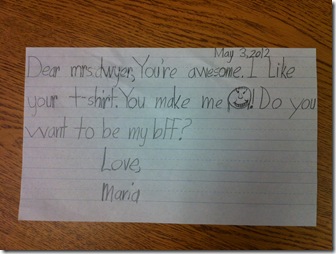 May 3, 2012
Dear mrs.dwyer, You're awesome. I Like
your t-shirt. You make me ! Do you
want to be my bff?
Love,
Maria